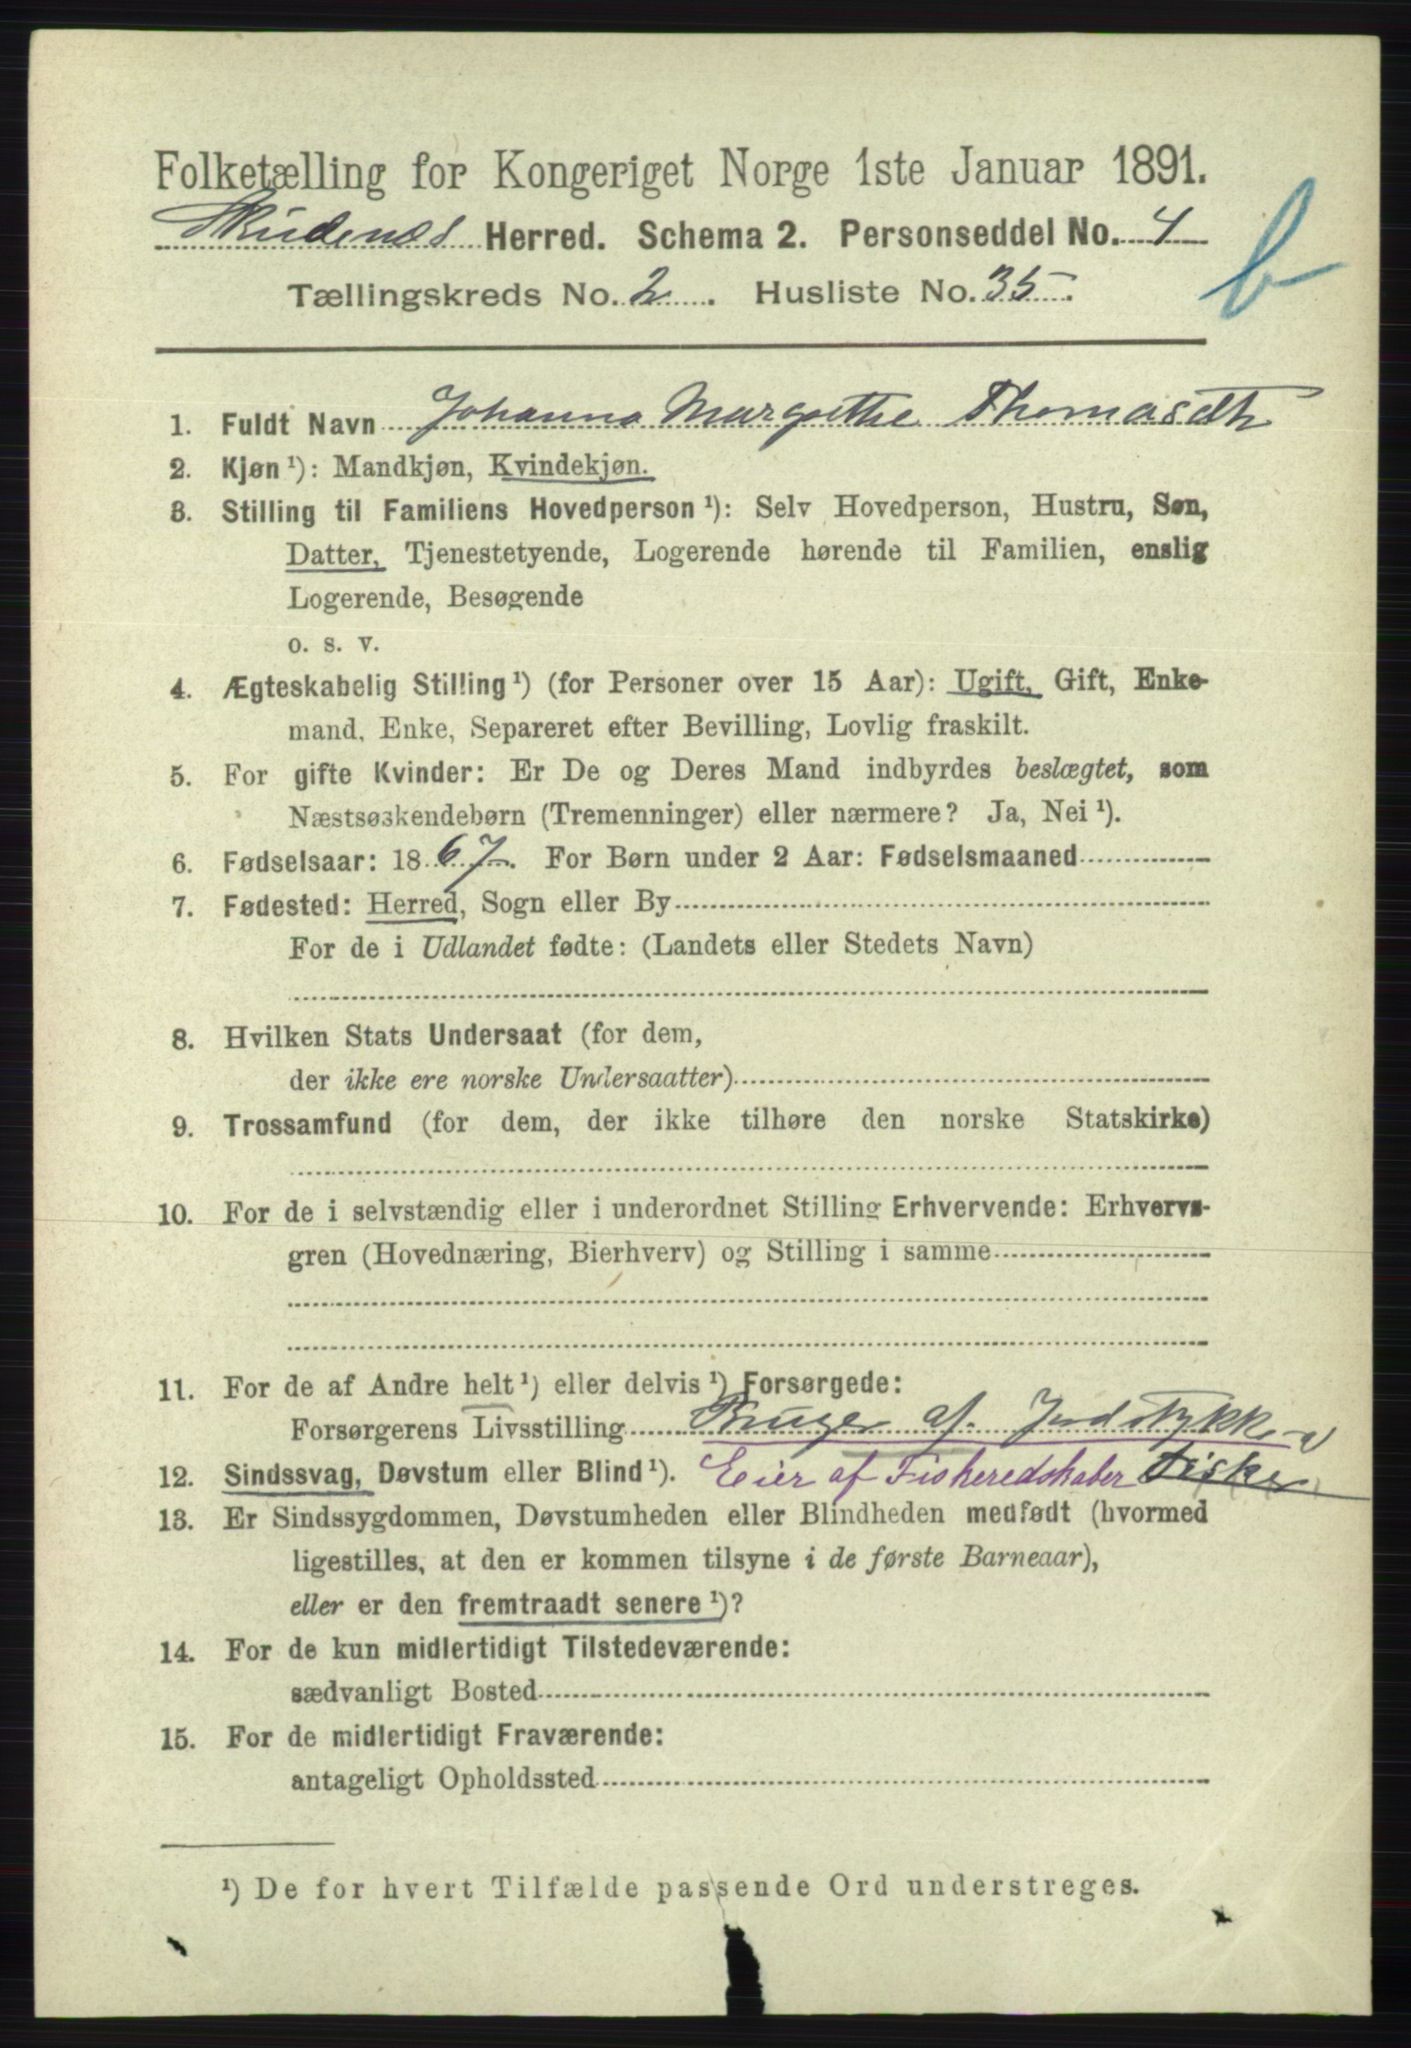 Folketælling for Kongeriget Norge 1ste Januar 1891.
Skudenæs Herred. Schema 2. Personseddel No. 4
Tællingskreds No. 2. Husliste No. 35.
b
1. Fuldt Navn Johanna Margrethe Thomasdtr
2. Kjøn ¹): Mandkjøn, Kvindekjøn.
3. Stilling til Familiens Hovedperson ¹): Selv Hovedperson, Hustru, Søn,
Datter, Tjenestetyende, Logerende hørende til Familien, enslig
Logerende, Besøgende
o. s. v.
4. Ægteskabelig Stilling ¹) (for Personer over 15 Aar): Ugift, Gift, Enke-
mand, Enke, Separeret efter Bevilling, Lovlig fraskilt.
5. For gifte Kvinder: Er De og Deres Mand indbyrdes beslægtet, som
Næstsøskendebørn (Tremenninger) eller nærmere? Ja, Nei ¹).
6. Fødselsaar: 1867. For Børn under 2 Aar: Fødselsmaaned
7. Fødested: Herred, Sogn eller By
For de i Udlandet fødte: (Landets eller Stedets Navn)
8. Hvilken Stats Undersaat (for dem,
der ikke ere norske Undersaatter)
9. Trossamfund (for dem, der ikke tilhøre den norske Statskirke)
10. For de i selvstændig eller i underordnet Stilling Erhvervende: Erhvervs-
gren (Hovednæring, Bierhverv) og Stilling i samme
11. For de af Andre helt ¹) eller delvis ¹) Forsørgede:
Forsørgerens Livsstilling Bruger af Jordstykke
12. Sindssvag, Døvstum eller Blind ¹). Eier af Fiskeredskaber Fisker
13. Er Sindssygdommen, Døvstumheden eller Blindheden medfødt (hvormed
ligestilles, at den er kommen tilsyne i de første Barneaar),
eller er den fremtraadt senere ¹)?
14. For de kun midlertidigt Tilstedeværende:
sædvanligt Bosted
15. For de midlertidigt Fraværende:
antageligt Opholdssted
¹) De for hvert Tilfælde passende Ord understreges.